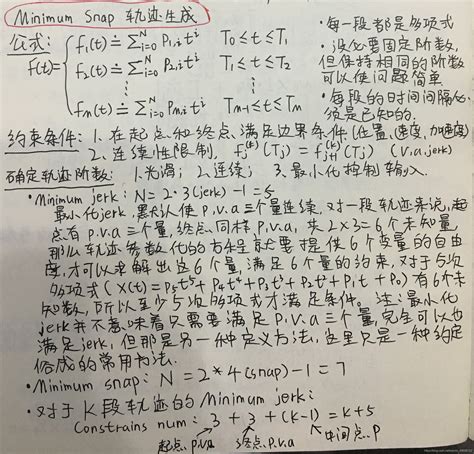 Minimum Snap 轨迹生成
公式:
f(t)=
f₁(t) ≐ Σᵢ₌₀ᴺ P₁,ᵢ tⁱ  T₀ ≤ t ≤ T₁
f₂(t) ≐ Σᵢ₌₀ᴺ P₂,ᵢ tⁱ  T₁ ≤ t ≤ T₂
⋮ ⋮
fₘ(t) ≐ Σᵢ₌₀ᴺ Pₘ,ᵢ tⁱ  Tₘ₋₁ ≤ t ≤ Tₘ
• 每一段都是多项式
• 没必要固定阶数,
但保持相同的阶数
可以使问题简单
• 每段的时间间隔必
须是已知的.
约束条件: 1. 在起点和终点,满足边界条件 (位置,速度,加速度)
2. 连续性限制, fⱼ⁽ᵏ⁾(Tⱼ) = fⱼ₊₁⁽ᵏ⁾(Tⱼ) (v,a,jerk)
确定轨迹阶数: 1.光滑; 2.连续; 3.最小化控制输入.
• Minimum jerk: N=2·3(jerk)-1=5
最小化jerk,默认使p.v.a三个量连续,对一段轨迹来说,起
点有p.v.a三个量,终点同样p.v.a,共2×3=6个未知量
那么轨迹参数化的方程就要提供6个变量的自由
度,才可以求解出这6个量,满足6个量的约束,对于5次
多项式 (X(t)=P₅t⁵+P₄t⁴+P₃t³+P₂t²+P₁t+P₀) 有6个未
知数,所以至少5次多项式才满足条件. 注:最小化
jerk并不意味着只需要满足p.v.a三个量,完全可以也
满足jerk,但那是另一种定义方法,这里只是一种约定
俗成的常用方法.
• Minimum snap: N=2*4(snap)-1=7
• 对于K段轨迹的Minimum jerk:
Constrains num: 3+3+(k-1)=k+5
起点.p.v.a 终点.p.v.a 中间点.p